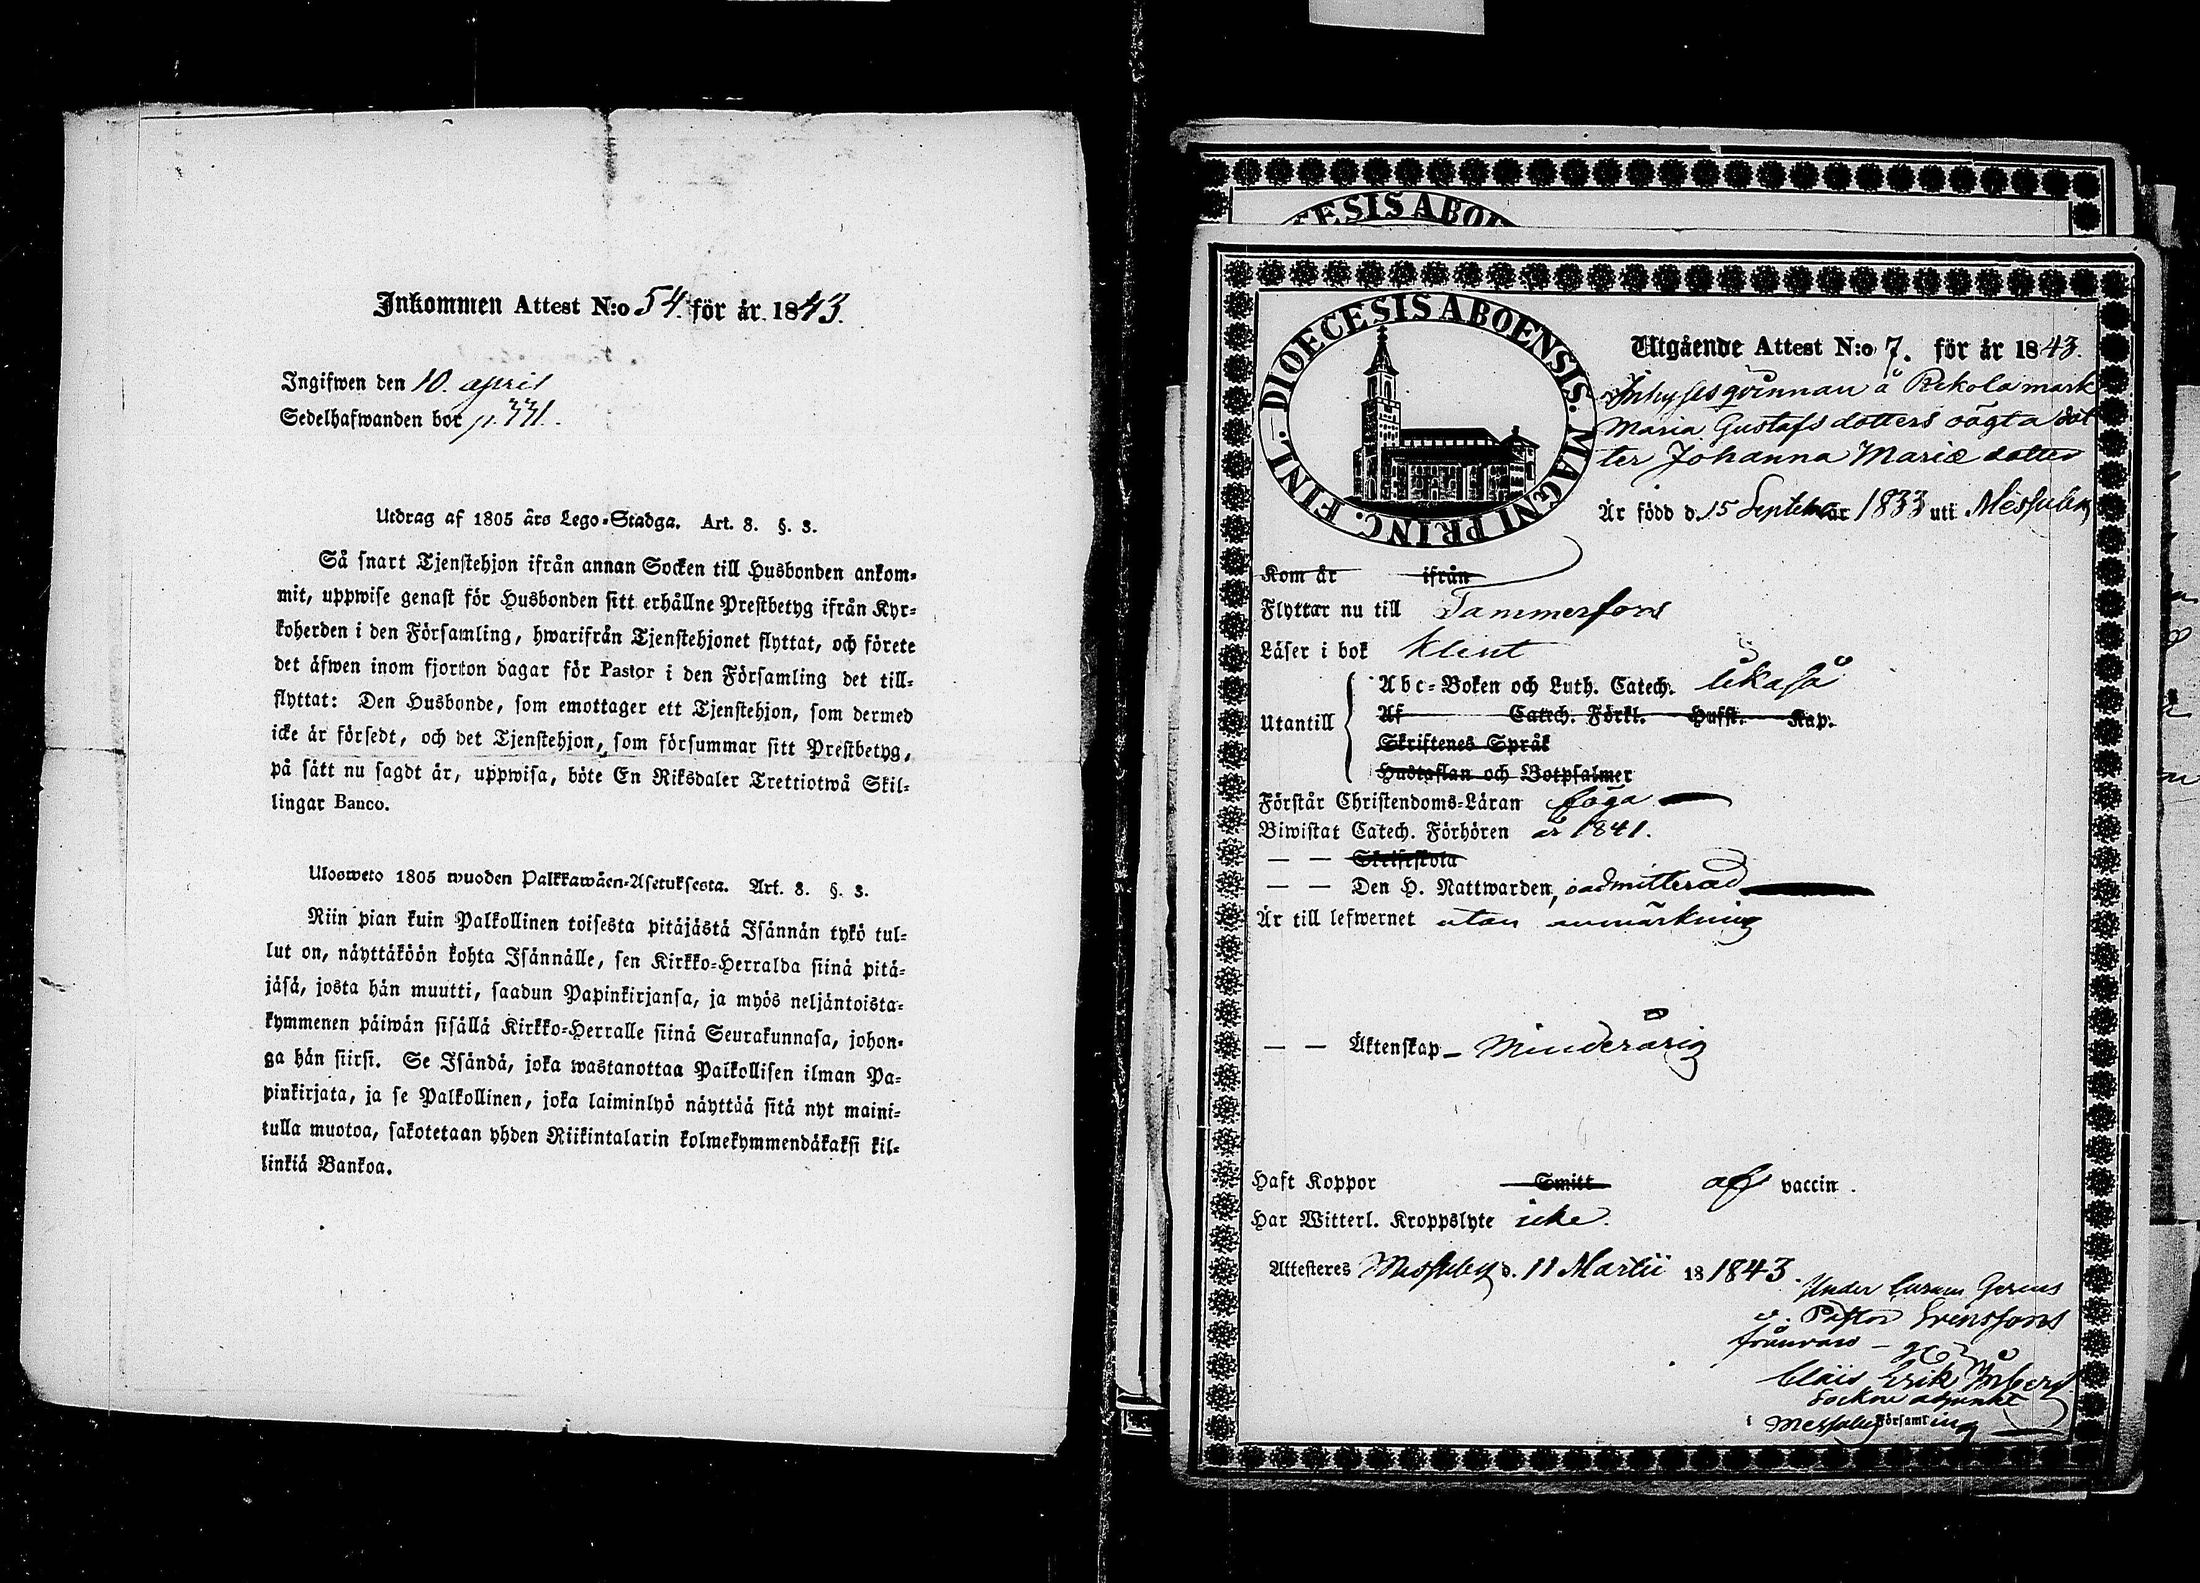 Inkommen Attest N:o 54. för år 1843.
Ingifwen den 10. april
Sedelhafwanden bor p. 331.
Utdrag af 1805 års Lego-Stadga. Art. 8. §. 3.
Så snart Tjenstehjon ifrån annan Socken till Husbonden ankom-
mit, uppwise genast för Husbonden sitt erhållne Prestbetyg ifrån Kyr-
koherden i den Församling, hwarifrån Tjenstehjonet flyttat, och förete
det äfwen inom fjorton dagar för Pastor i den Församling det till-
flyttat: Den Husbonde, som emottager ett Tjenstehjon, som dermed
icke är försedt, och det Tjenstehjon, som försummar sitt Prestbetyg,
på sätt nu sagdt är, uppwisa, böte En Riksdaler Trettiotwå Skil-
lingar Banco.
Ulosweto 1805 wuoden Palkkawäen-Asetuksesta. Art. 8. §. 3.
Niin pian kuin Palkollinen toisesta pitäjästä Isännän tykö tul-
lut on, näyttäköön kohta Isännälle, sen Kirkko-Herralda siinä pitä-
jäsä, josta hän muutti, saadun Papinkirjansa, ja myös neljäntoista-
kymmenen päiwän sisällä Kirkko-Herralle siinä Seurakunnasa, johon-
ga hän siirsi. Se Isändä, joka wastanottaa Palkollisen ilman Pa-
pinkirjata, ja se Palkollinen, joka laiminlyö näyttää sitä nyt maini-
tulla muotoa, sakotetaan yhden Riikintalarin kolmekymmendäkaksi kil-
linkiä Bankoa.
ESIS ABOE
DIOECESIS ABOENSIS. MAGNI PRINC. FINL.
Utgående Attest N:o 7. för år 1843.
Inhyses qvinnan å Rekola mark
Maria Gustafs dotters oägta dot
ter Johanna Mariæ dotter
Är född d. 15 Septebr år 1833 uti Messuby
Kom år ifrån
Flyttar nu till Tammerfors
Läser i bok klent
Utantill
Abc-Boken och Luth. Catech. likaså
Af Catech. Förkl. Hufst. Kap.
Skriftenes Språk
Hustaflan och Botpsalmer
Förstår Christendoms-Läran föga
Biwistat Catech. Förhören år 1841.
— — Skriftskola
— — Den H. Nattwarden, oadmitterad
Är till lefwernet utan anmärkning
— — Äktenskap - Minderårig
Haft Koppor Smitt af vaccin.
Har Witterl. Kroppslyte icke.
Attesteres Messuby d. 11 Martii 18 1843.
Under Curam Gerens
v. Pastor Svenssons
frånvaro -
Claës Erik
Sockne adjunkt
i Messuby Församling